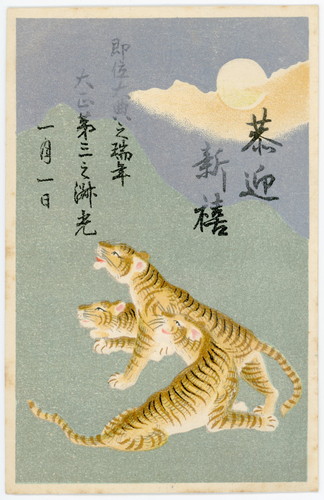 恭迎
新禧
即位大典之瑞年
大正第三之淑光
一月一日